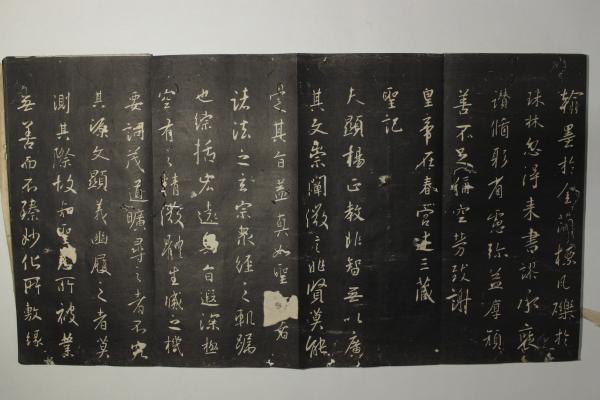 翰墨於金簡標瓦礫於
珠林忽得来書謬承褒
讚循躬省慮弥益厚顏
善不足稱空勞致謝
皇帝在春宮述三藏
聖記
夫顯揚正教非智無以廣
其文崇闡微言非賢莫能
定其旨蓋真如聖者
諸法之玄宗衆經之軌躅
也綜括宏遠奧旨遐深極
空有之精微體生滅之機
要詞茂道曠尋之者不究
其源文顯義幽履之者莫
測其際故知聖慈所被業
無善而不臻妙化所敷緣